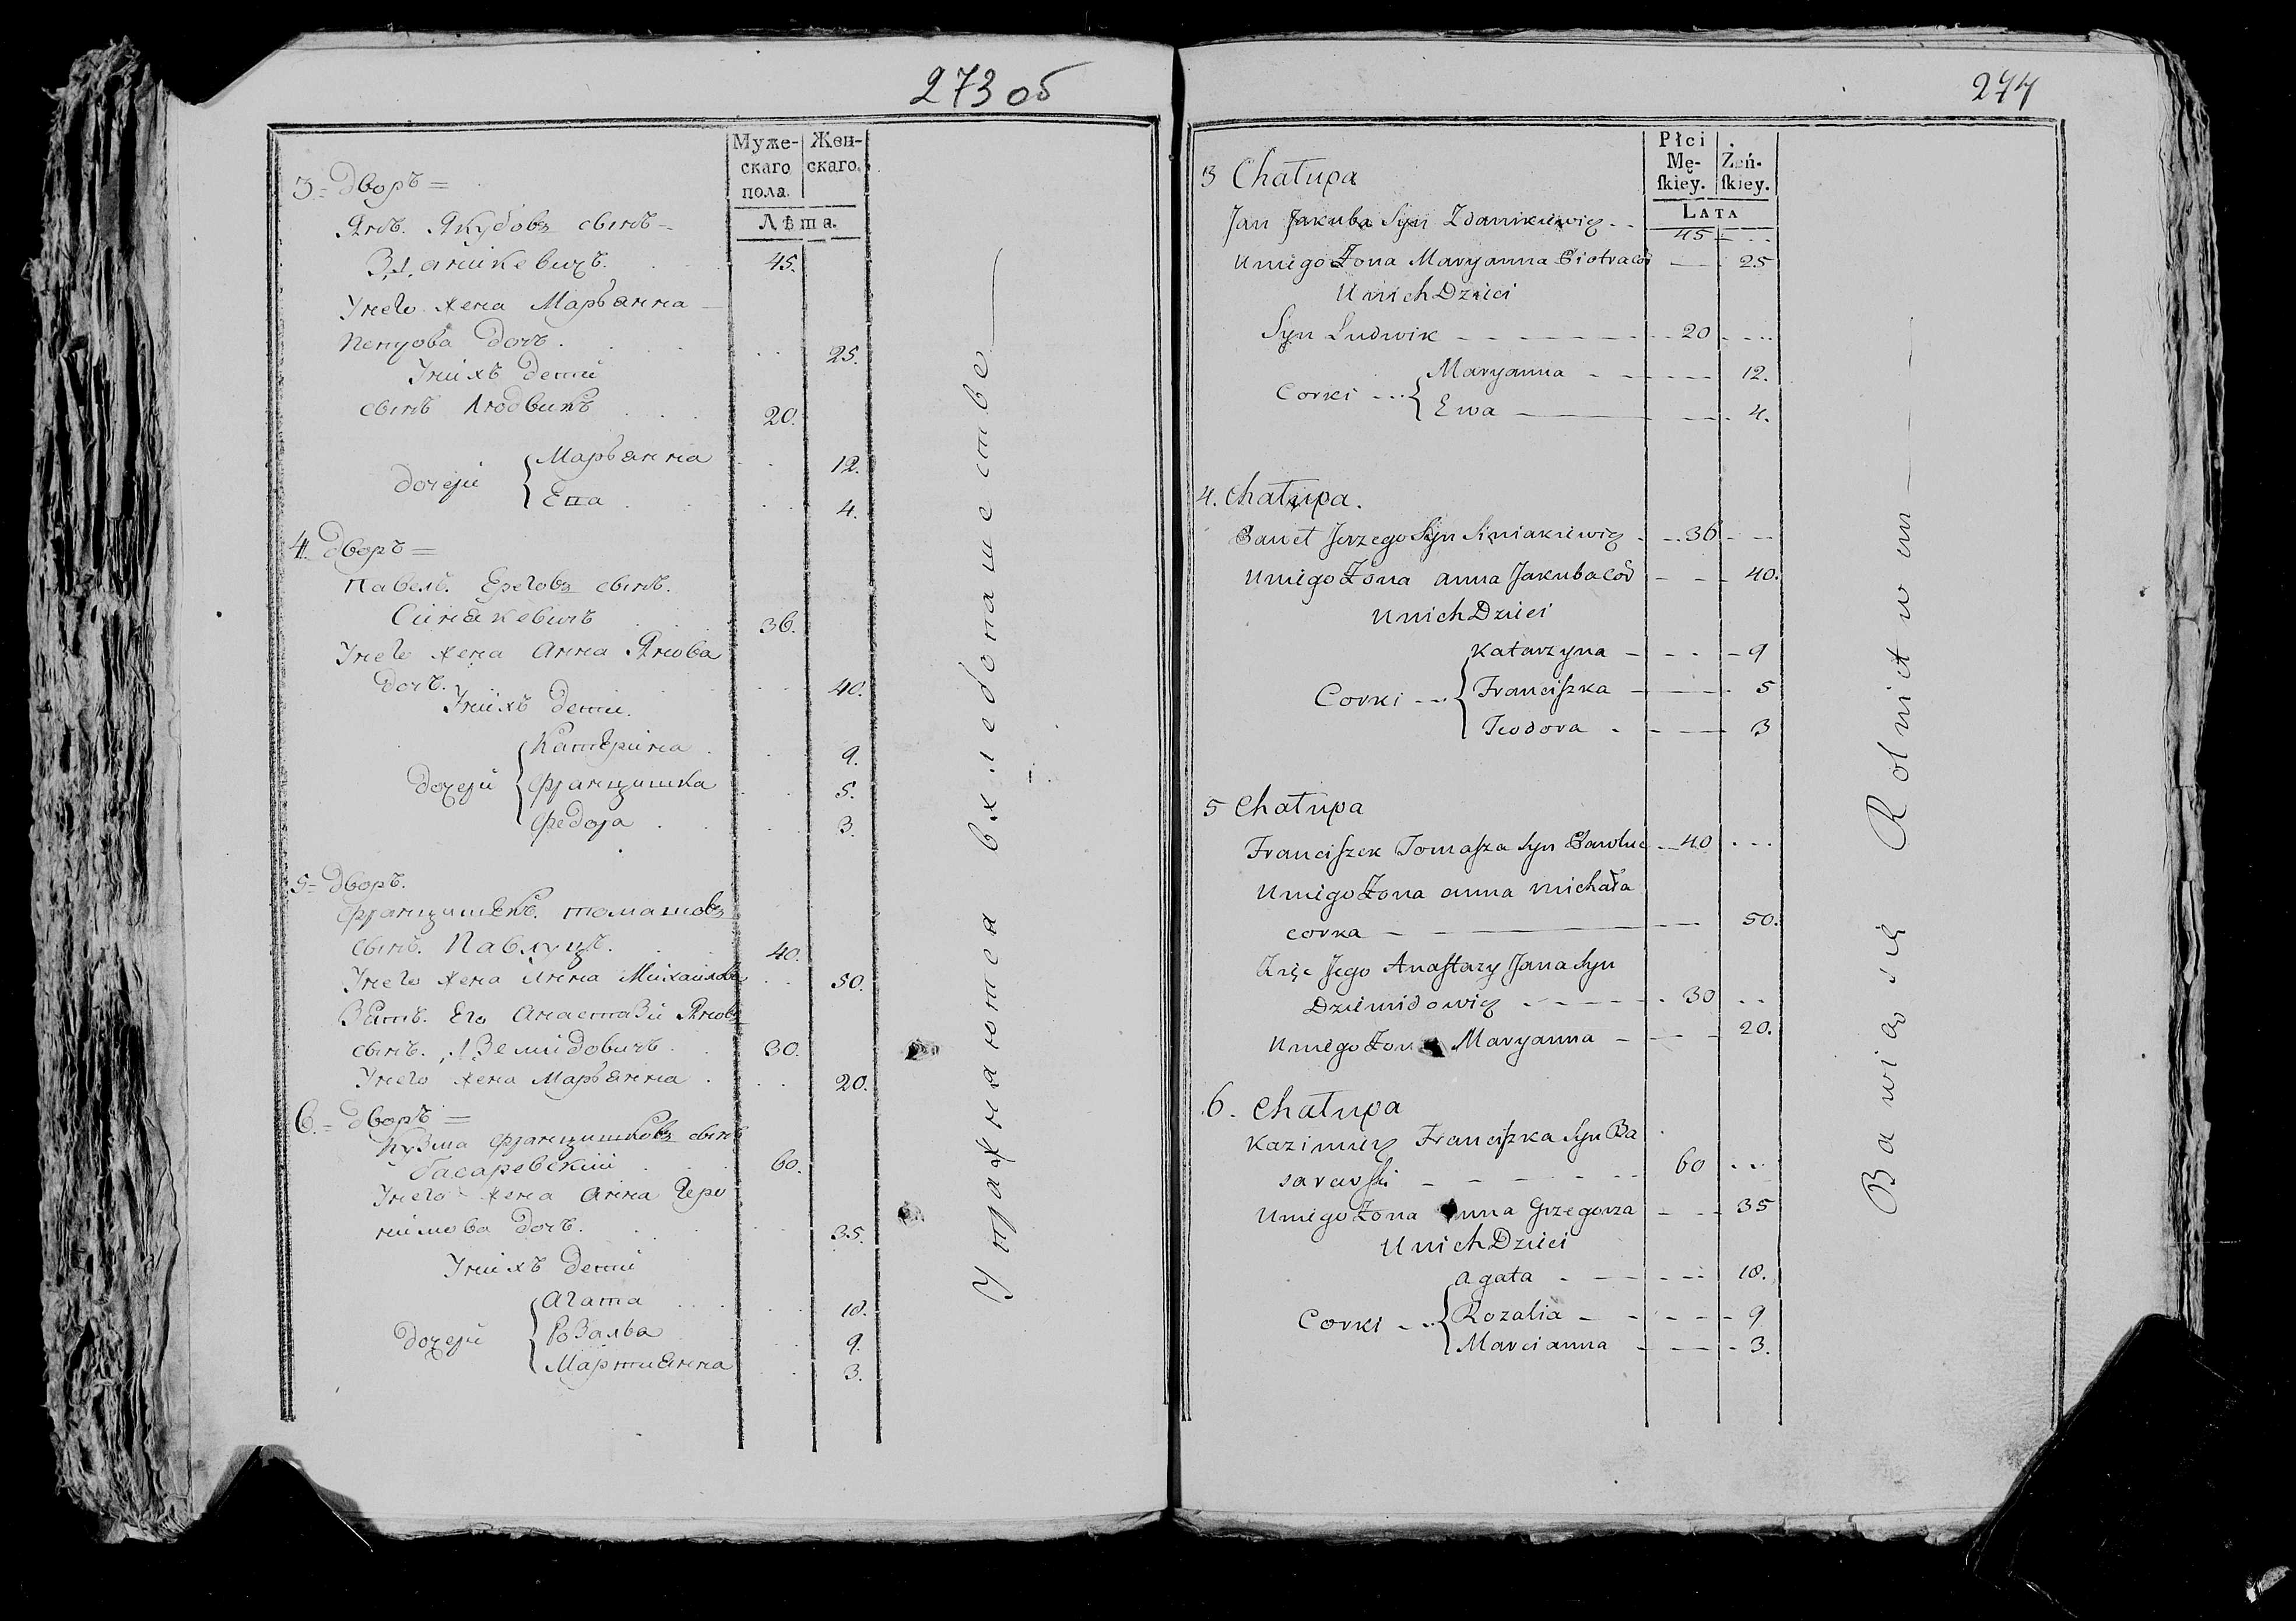 273 об
Муже-
скаго
пола.
Жен-
скаго.
Лѣта.
3 = дворъ =
Янъ. Якубовъ сынъ =
Зданикевичъ. 45.
Унего жена Марьянна
Петрова дочъ. 25.
Унихъ дети
сынъ Людвикъ 20.
дочери { Марьянна 12.
Ева 4.
4. дворъ =
Павелъ. Ереговъ сынъ.
Синякевичъ 36.
Унего жена Анна Янова
дочъ. 40.
Унихъ дети.
дочери { Катерина 9.
Францишка 5.
Федора 3.
5 = дворъ.
Францишекъ. томашовъ
сынъ. Павлуць. 40.
Унего жена Анна Михайлова 50.
Зять. Его Анастазіи Яновъ
сынъ. Дземидовичъ. 30.
Унего жена Марьянна 20.
6. = дворъ =
Кузма Францишковъ сынъ
басаревскіи 60.
Унего жена Анна Геро
нимова дочъ. 35.
Унихъ дети
дочери { Агата 18.
Розалъа 9.
Мартианна 3.
Упражнаются вхлебопашестве
274
Płci
Mę-
ſkiey.
Żeń-
ſkiey.
LATA
3 Chałupa
Jan Jakuba Syn Zdanikiewicz 45
Uniego Żona Maryanna Piotra cór 25
U nich Dzieci
Syn Ludwik 20
Corki { Maryanna 12.
Ewa 4.
4. Chałupa.
Paweł Jerzego Syn Siniakiewicz 36
Uniego Żona anna Jakuba Cór 40.
U nich Dzieci
Corki { Katarzyna 9
Franciſzka 5
Teodora 3
5 Chałupa
Franciſzek Tomaſza Syn Pawluć 40
Uniego Żona anna Michała
corka 50.
Zięć Jego Anaſtazy Jana Syn
Dziemidowicz 30
Uniego Żona Maryanna 20.
6. Chałupa
Kazimierz Franciſzka Syn Ba
sarewſki 60
Uniego Żona Anna Grzegorza 35
U nich Dzieci
Corki { agata 18.
Rozalia 9
Marcianna 3.
Bawią się Rolnictwem